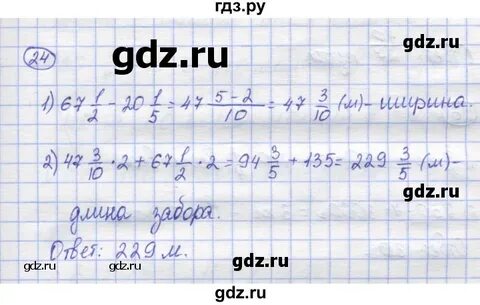 гдз.ру
gdz.ru gdz.ru
24
gdz.ru
1) 67 1/2 - 20 1/5 = 47 (5-2)/10 = 47 3/10 (м) - ширина.
gdz.ru
2) 47 3/10 · 2 + 67 1/2 · 2 = 94 3/5 + 135 = 229 3/5 (м) -
gdz.ru
длина забора.
gdz.ru
Ответ: 229 м.
gdz.ru gdz.ru gdz.ru